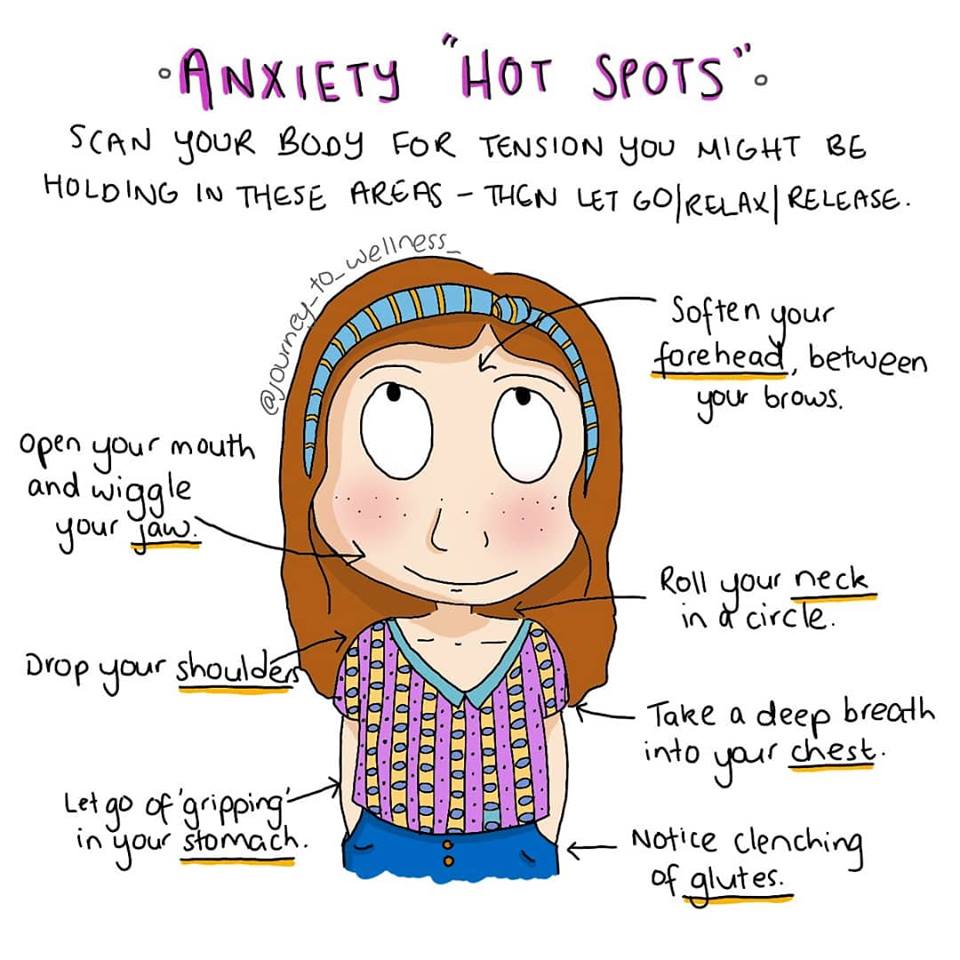 ANXIETY "HOT SPOTS"
SCAN YOUR BODY FOR TENSION YOU MIGHT BE
HOLDING IN THESE AREAS - THEN LET GO/RELAX/RELEASE.
@journey_to_wellness_
Soften your
forehead, between
your brows.
Open your mouth
and wiggle
your jaw.
Roll your neck
in a circle.
Drop your shoulders
Take a deep breath
into your chest.
Let go of 'gripping'
in your stomach.
Notice clenching
of glutes.